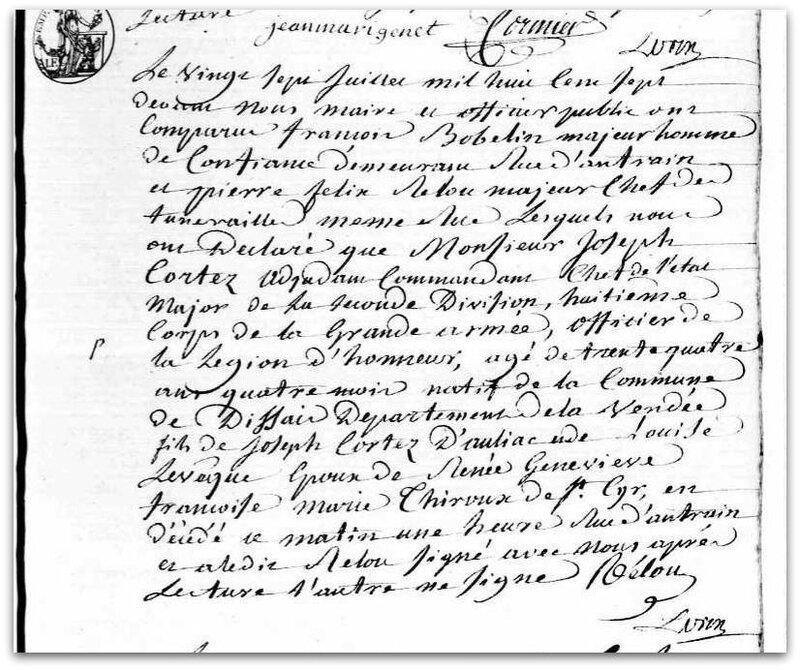 Lecture jeanmarigenet Cormier
Lorin
Le vingt sept Juillet mil huit Cent sept
devant nous maire et officier public ont
Comparu francois Bobelin majeur homme
de Confiance demeurant Rue d'antrain
et pierre felix Relou majeur Chef de
funeraille meme Rue Lesquels nous
ont Declaré que Monsieur Joseph
Cortez adjudant Commandant Chef de l'état
Major de la seconde Division, huitieme
Corps de la Grande armée, officier de
la Legion d'honneur, agé de trente quatre
ans quatre mois natif de la Commune
de Dissais Departement de la Vendée
fils de Joseph Cortez D'auliac et de Louise
Levêque Epoux de Renée Genevieve
francoise Marie Chiroux de St. Cyr, est
décédé ce matin une heure Rue d'antrain
et a ledit Relou signé avec nous après
Lecture l'autre ne signe Rélou
Lorin